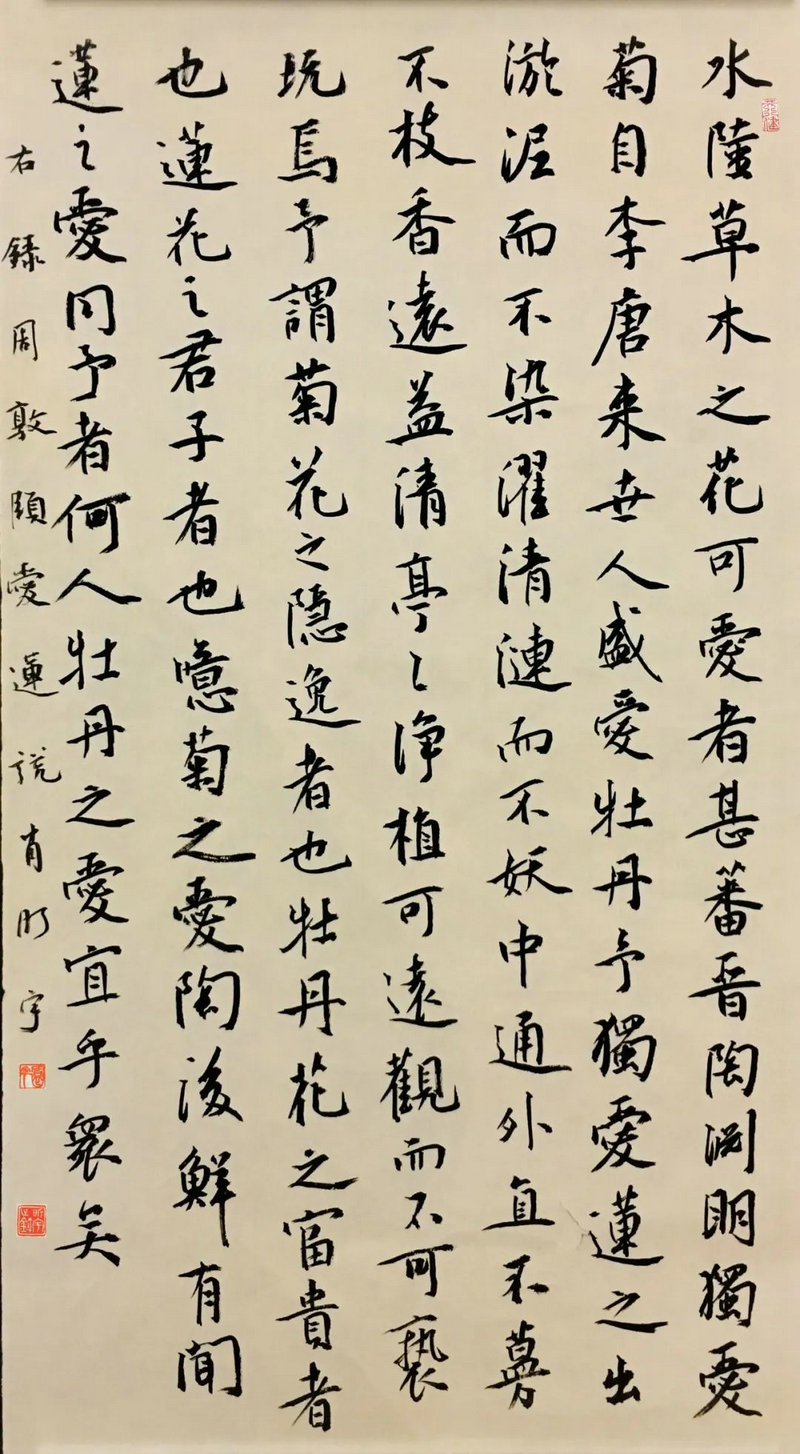 水陸草木之花可愛者甚蕃晋陶渕明獨愛
菊自李唐来世人盛愛牡丹予獨愛蓮之出
淤泥而不染濯清漣而不妖中通外直不蔓
不枝香遠益清亭〻淨植可遠觀而不可褻
玩焉予謂菊花之隱逸者也牡丹花之富貴者
也蓮花之君子者也噫菊之愛陶後鮮有聞
蓮之愛同予者何人牡丹之愛宜乎衆矣
右錄周敦頤愛蓮說肖明宇